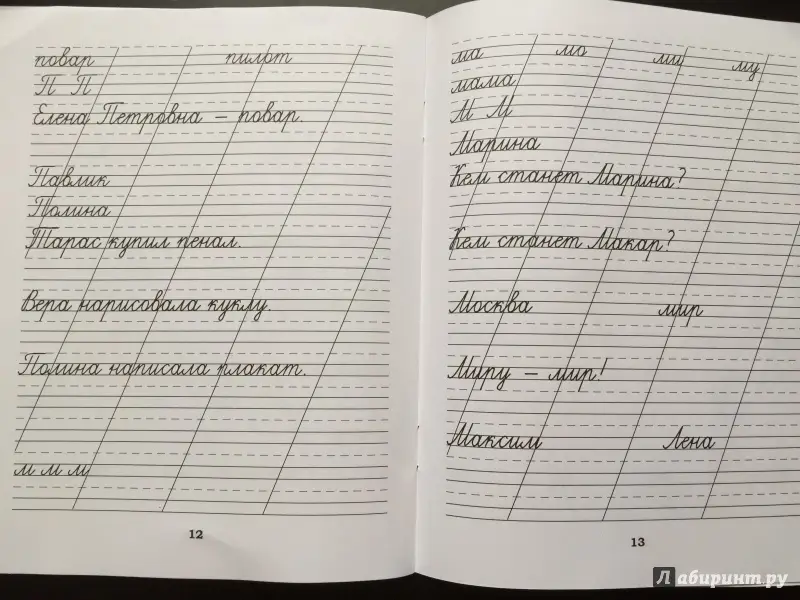 повар пилот
П П
Елена Петровна – повар.
Павлик
Полина
Тарас купил пенал.
Вера нарисовала куклу.
Полина написала плакат.
м м м
12
ма мо ми му
мама
М М
Марина
Кем станет Марина?
Кем станет Макар?
Москва мир
Миру – мир!
Максим Лена
13
Лабиринт.ру